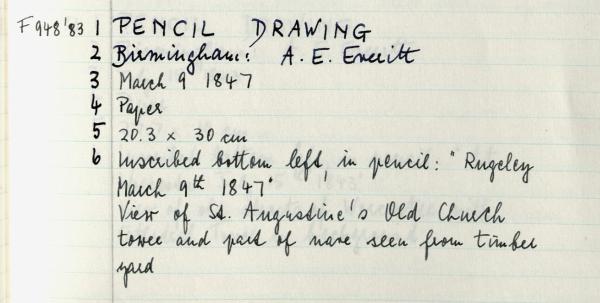 F948'83 1 PENCIL DRAWING
2 Birmingham: A. E. Everitt
3 March 9 1847
4 Paper
5 20.3 x 30 cm
6 Inscribed bottom left, in pencil: "Rugeley
March 9th 1847"
View of St. Augustine's Old Church
tower and part of nave seen from timber
yard